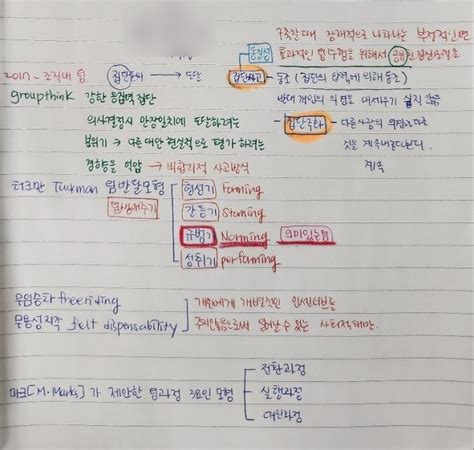 구축할 때 잠재적으로 나타나는 부정적인면
동질성 효과적인 팀수행을 위해서 공유된 정신모형을
2017 - 조직내 팀 집단동의 → 도달 집단사고 동조 (집단의 압력에 의해 동조)
groupthink 강한 응집력 집단 반대 개인의 의견을 내세우기 쉽지 않음
의사결정시 만장일치에 도달하려는 집단극화 - 다른사람의 의견이
분위기 → 다른 대안 현실적으로 평가 하려는 것을
경향을 억압 → 비합리적 사고방식
터크만 Tuckman 팀발달모형 형성기 Forming
팀생애주기 갈등기 Storming
규범기 Norming 의미있는팀
성취기 performing
무임승차 freeriding 개인에게 개별적인 인센티브를
무용성지각 felt dispensability 주지않음으로써 일어날 수 있는 사회적태만
전환과정
마크[M.Marks]가 제안한 팀과정 3요인 모형 실행과정
대인과정